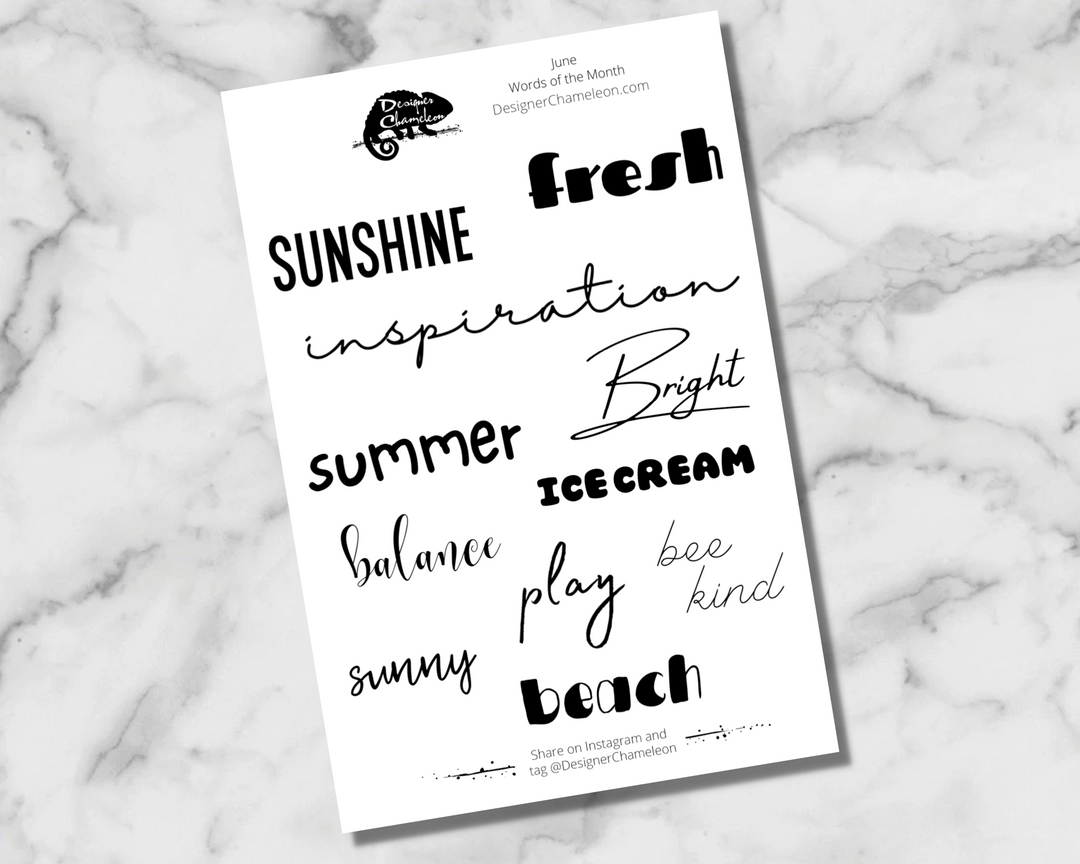 Designer
Chameleon
June
Words of the Month
DesignerChameleon.com
fresh
SUNSHINE
inspiration
Bright
summer
ICE CREAM
balance
play
bee
kind
sunny
beach
Share on Instagram and
tag @DesignerChameleon